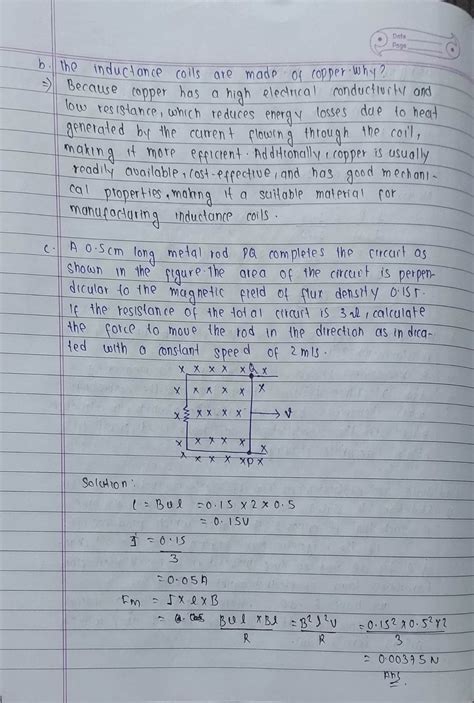 Date
Page
b. The inductance coils are made of copper. Why?
=) Because copper has a high electrical conductivity and
low resistance, which reduces energy losses due to heat
generated by the current flowing through the coil,
making it more efficient. Additionally, copper is usually
readily available, cost-effective, and has good mechani-
cal properties, making it a suitable material for
manufacturing inductance coils.
c. A 0.5cm long metal rod PQ completes the circuit as
shown in the figure. The area of the circuit is perpen-
dicular to the magnetic field of flux density 0.15T.
If the resistance of the total circuit is 3Ω, calculate
the force to move the rod in the direction as indica-
ted with a constant speed of 2m/s.
x x x x x Q x
x x x x x x
x x x x x → v
x x x x x x
x x x x xP x
Solution:
ε = Bvl = 0.15 x 2 x 0.5
= 0.15V
I = 0.15/3
= 0.05A
Fm = I x l x B
= Bvl x Bl / R = B²l²v / R = 0.15² x 0.5² x 2 / 3
= 0.00375N
Ans